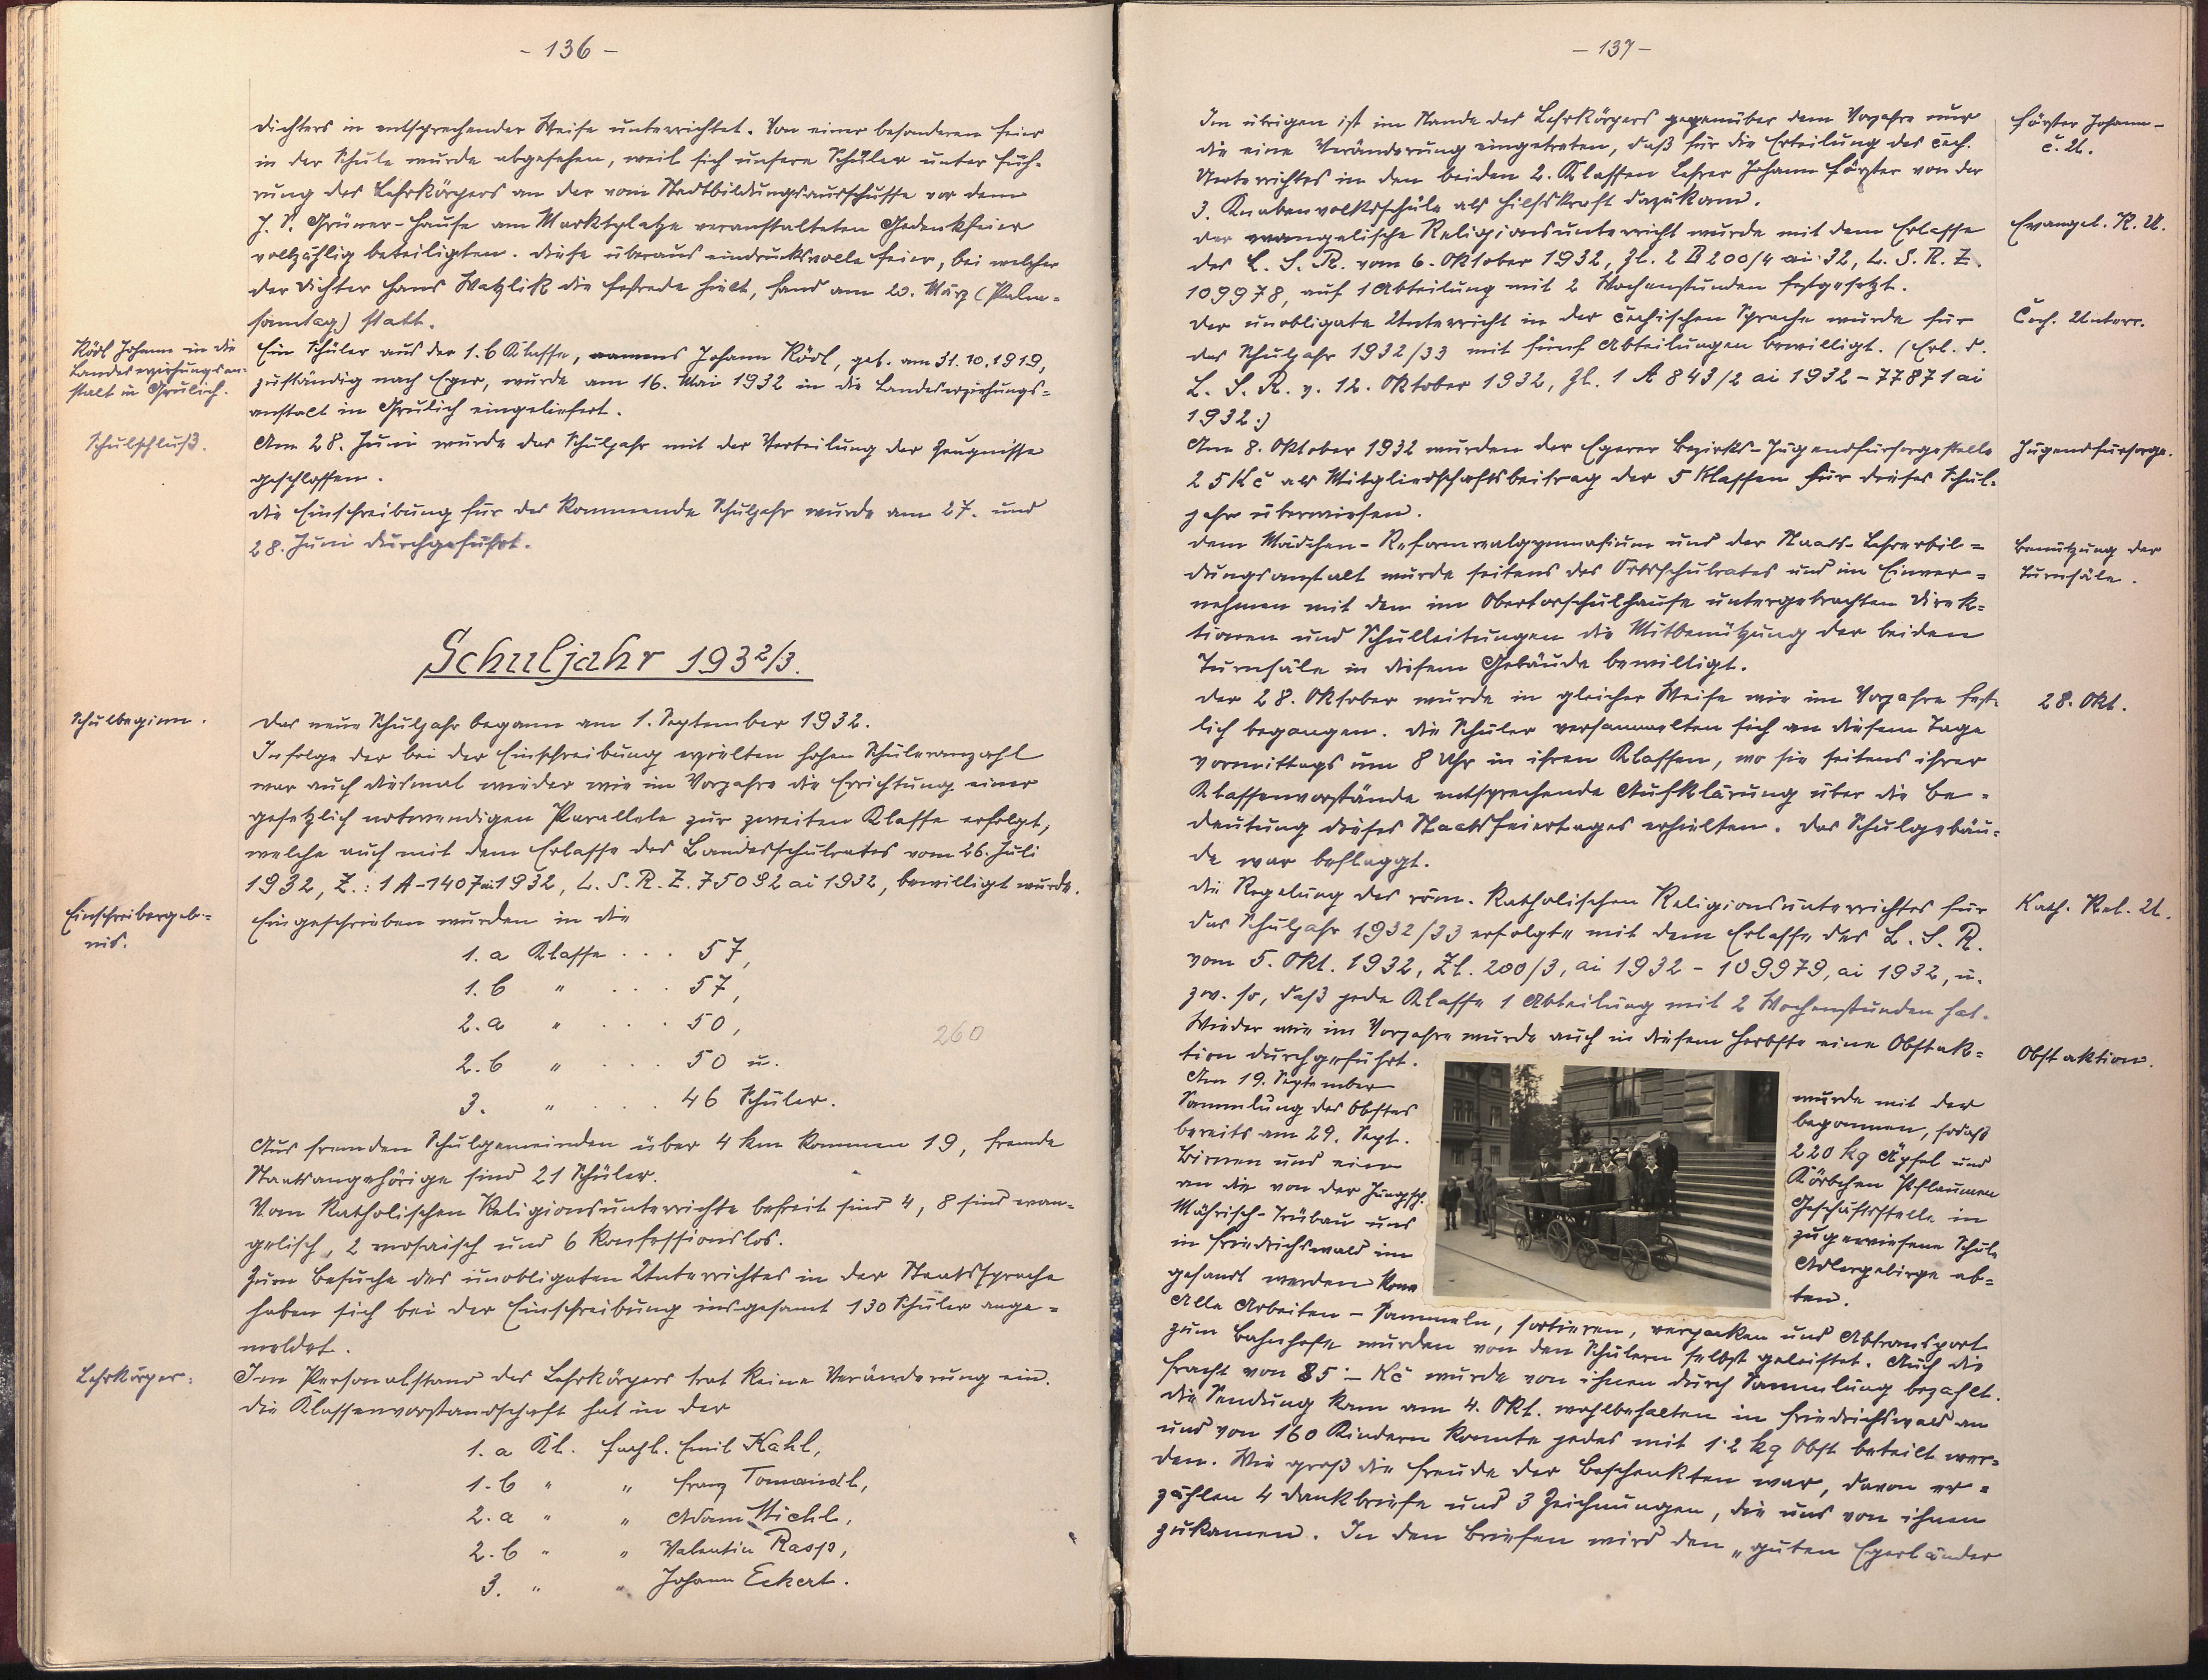 - 136 -
dichters in entsprechender Weise unterrichtet. Von einer besonderen Feier
in der Schule wurde abgesehen, weil sich unsere Schüler unter Füh-
rung des Lehrkörpers an der vom Stadtbildungsausschusse vor dem
J. S. Grüner-Hause am Marktplatze veranstalteten Gedenkfeier
vollzählig beteiligten. Diese überaus eindrucksvolle Feier, bei welcher
der Dichter Hans Watzlik die Festrede hielt, fand am 20. März (Palm-
sonntag) statt.
Rödl Johann in die
Landeserziehungsan-
stalt in Grulich.
Ein Schüler aus der 1. b Klasse, namens Johann Rödl, geb. am 31.10.1919,
zuständig nach Eger, wurde am 16. Mai 1932 in die Landeserziehungs-
anstalt in Grulich eingeliefert.
Schulschluß.
Am 28. Juni wurde das Schuljahr mit der Verteilung der Zeugnisse
geschlossen.
Die Einschreibung für das kommende Schuljahr wurde am 27. und
28. Juni durchgeführt.
Schuljahr 1932/3.
Schulbeginn.
Das neue Schuljahr begann am 1. September 1932.
Infolge der bei der Einschreibung erzielten hohen Schüleranzahl
war auch diesmal wieder wie im Vorjahre die Errichtung einer
gesetzlich notwendigen Parallele zur zweiten Klasse erfolgt,
welche auch mit dem Erlasse des Landesschulrates vom 26. Juli
1932, Z.: 1 A-1407 ai 1932, L. S. R. Z. 75092 ai 1932, bewilligt wurde.
Einschreibergeb-
nis.
Eingeschrieben wurden in die
1. a Klasse . . . 57,
1. b " . . . 57,
2. a " . . . 50,
260
2. b " . . . 50 u.
3. " . . . 46 Schüler.
Aus fremden Schulgemeinden über 4 km kommen 19, fremde
Staatsangehörige sind 21 Schüler.
Vom katholischen Religionsunterrichte befreit sind 4, 8 sind evan-
gelisch, 2 mosaisch und 6 konfessionslos.
Zum Besuche des unobligaten Unterrichtes in der Staatssprache
haben sich bei der Einschreibung insgesamt 130 Schüler ange-
meldet.
Lehrkörper:
Im Personalstand des Lehrkörpers trat keine Veränderung ein.
Die Klassenvorstandschaft hat in der
1. a Kl. Fachl. Emil Kahl,
1. b " " Franz Tomaindl,
2. a " " Adam Michl,
2. b " " Valentin Rasp,
3. " " Johann Eckert.
- 137 -
Im übrigen ist im Stande des Lehrkörpers gegenüber dem Vorjahre nur
die eine Veränderung eingetreten, daß für die Erteilung des čech.
Unterrichtes in den beiden 2. Klassen Lehrer Johann Förster von der
3. Knabenvolksschule als Hilfskraft dazukam.
Förster Johann -
č. U.
Der evangelische Religionsunterricht wurde mit dem Erlasse
des L. S. R. vom 6. Oktober 1932, Zl. 2 B 200/4 ai 32, L. S. R. Z.
109978, auf 1 Abteilung mit 2 Wochenstunden festgesetzt.
Evangel. R. U.
Der unobligate Unterricht in der čechischen Sprache wurde für
das Schuljahr 1932/33 mit fünf Abteilungen bewilligt. (Erl. d.
L. S. R. v. 12. Oktober 1932, Zl. 1 A 843/2 ai 1932 - 77871 ai
1932.)
Čech. Unterr.
Am 8. Oktober 1932 wurden der Egerer Bezirks-Jugendfürsorgestelle
25 Kč als Mitgliedschaftsbeitrag der 5 Klassen für dieses Schul-
jahr überwiesen.
Jugendfürsorge.
Dem Mädchen-Reformrealgymnasium und der Staats-Lehrerbil-
dungsanstalt wurde seitens des Ortsschulrates und im Einver-
nehmen mit den im Obertorschulhause untergebrachten Direk-
tionen und Schulleitungen die Mitbenützung der beiden
Turnsäle in diesem Gebäude bewilligt.
Benützung der
Turnsäle.
Der 28. Oktober wurde in gleicher Weise wie im Vorjahre fest-
lich begangen. Die Schüler versammelten sich an diesem Tage
vormittags um 8 Uhr in ihren Klassen, wo sie seitens ihrer
Klassenvorstände entsprechende Aufklärung über die Be-
deutung dieses Staatsfeiertages erhielten. Das Schulgebäu-
de war beflaggt.
28. Okt.
Die Regelung des röm. katholischen Religionsunterrichtes für
das Schuljahr 1932/33 erfolgte mit dem Erlasse des L. S. R.
vom 5. Okt. 1932, Zl. 200/3, ai 1932 - 109979, ai 1932, u.
zw. so, daß jede Klasse 1 Abteilung mit 2 Wochenstunden hat.
Kath. Rel. U.
Wieder wie im Vorjahre wurde auch in diesem Herbste eine Obstak-
tion durchgeführt.
Obstaktion.
Am 19. September wurde mit der
Sammlung des Obstes begonnen, sodaß
bereits am 29. Sept. 220 kg Äpfel und
Birnen und ein Körbchen Pflaumen
an die von der Geschäftsstelle in
Mährisch-Trübau uns zugewiesene Schule
in Friedrichswald im Adlergebirge ab-
gesandt werden konn ten.
Alle Arbeiten - Sammeln, sortieren, verpacken und Abtransport
zum Bahnhofe wurden von den Schülern selbst geleistet. Auch die
Fracht von 85·- Kč wurde von ihnen durch Sammlung bezahlt.
Die Sendung kam am 4. Okt. wohlbehalten in Friedrichswald an
und von 160 Kindern konnte jedes mit 1·2 kg Obst beteilt wer-
den. Wie groß die Freude der Beschenkten war, davon er-
zählen 4 Dankbriefe und 3 Zeichnungen, die uns von ihnen
zukamen. In den Briefen wird den „guten Egerländer